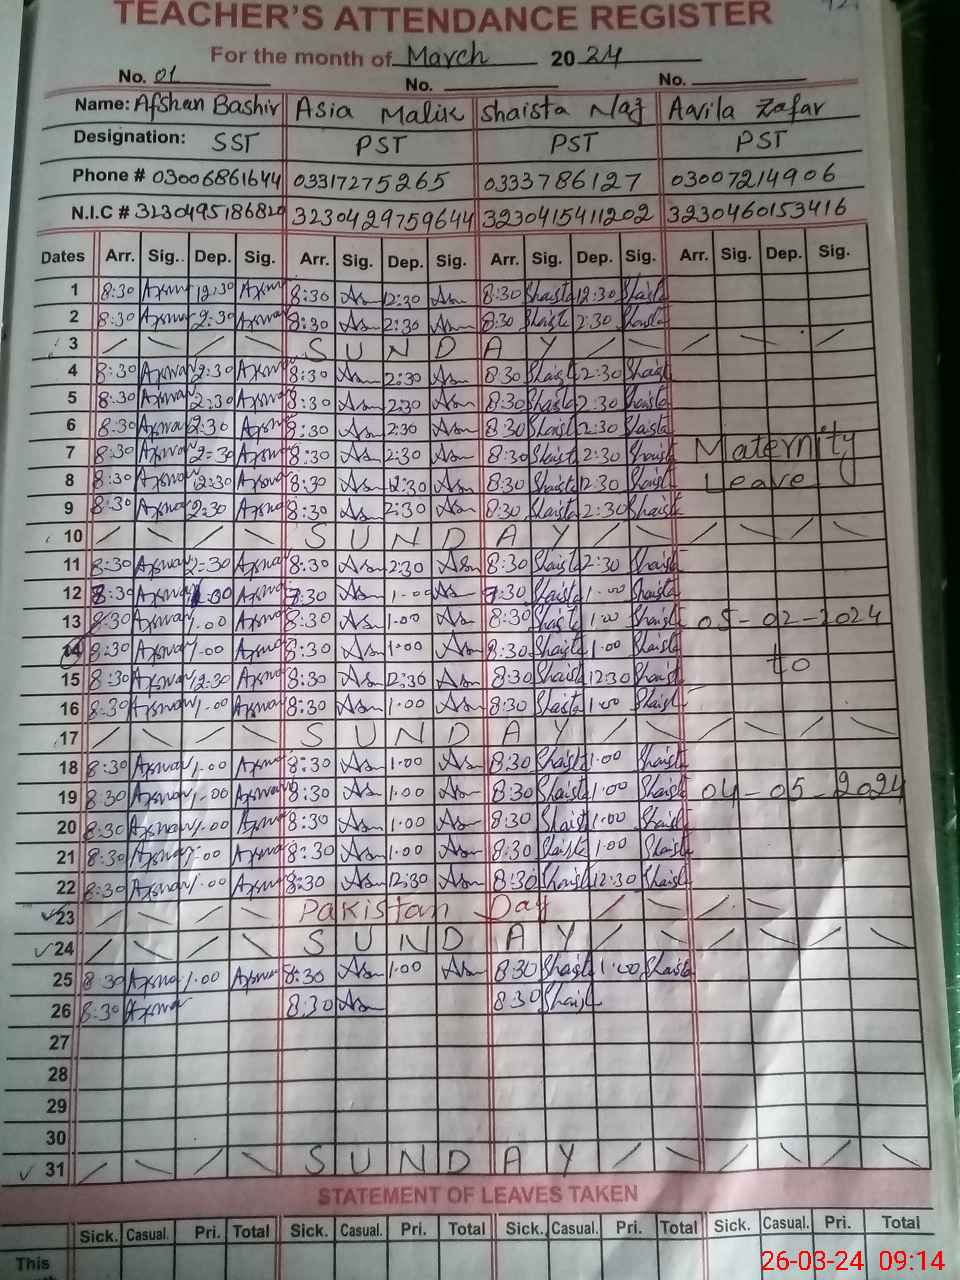 TEACHER'S ATTENDANCE REGISTER
For the month of March 2024
No. 01 No. No.
Name: Afshan Bashir Asia Malik Shaista Naz Aarila Zafar
Designation: SST PST PST PST
Phone # 03006861644 03317275265 0333786127 03007214906
N.I.C # 3230495186820 3230429759644 3230415411202 3230460153416
Dates Arr. Sig. Dep. Sig. Arr. Sig. Dep. Sig. Arr. Sig. Dep. Sig. Arr. Sig. Dep. Sig.
1 8:30 12:30 8:30 12:30 8:30 Shaista 12:30 Shaista
2 8:30 2:30 8:30 2:30 8:30 Shaista 2:30 Shaista
3 S U N D A Y
4 8:30 2:30 8:30 2:30 8:30 Shaista 2:30 Shaista
5 8:30 2:30 8:30 2:30 8:30 Shaista 2:30 Shaista
6 8:30 2:30 8:30 2:30 8:30 Shaista 2:30 Shaista
7 8:30 2:30 8:30 2:30 8:30 Shaista 2:30 Shaista Maternity
8 8:30 12:30 8:30 12:30 8:30 Shaista 12:30 Shaista Leave
9 8:30 2:30 8:30 2:30 8:30 Shaista 2:30 Shaista
10 S U N D A Y
11 8:30 2:30 8:30 2:30 8:30 Shaista 2:30 Shaista
12 8:30 1:00 :30 1:00 :30 Shaista 1:00 Shaista
13 8:30 1:00 8:30 1:00 8:30 Shaista 1:00 Shaista 05-02-2024
14 8:30 1:00 8:30 1:00 8:30 Shaista 1:00 Shaista to
15 8:30 12:30 8:30 12:30 8:30 Shaista 12:30 Shaista
16 8:30 1:00 8:30 1:00 8:30 Shaista 1:00 Shaista
17 S U N D A Y
18 8:30 1:00 8:30 1:00 8:30 Shaista 1:00 Shaista
19 8:30 1:00 8:30 1:00 8:30 Shaista 1:00 Shaista 04-05-2024
20 8:30 1:00 8:30 1:00 8:30 Shaista 1:00 Shaista
21 8:30 1:00 8:30 1:00 8:30 Shaista 1:00 Shaista
22 8:30 1:00 8:30 12:30 8:30 Shaista 12:30 Shaista
23 Pakistan Day
24 S U N D A Y
25 8:30 1:00 8:30 1:00 8:30 Shaista 1:00 Shaista
26 8:30 8:30 8:30 Shaista
27
28
29
30
31 S U N D A Y
STATEMENT OF LEAVES TAKEN
Sick. Casual. Pri. Total Sick. Casual. Pri. Total Sick. Casual. Pri. Total Sick. Casual. Pri. Total
This
26-03-24 09:14